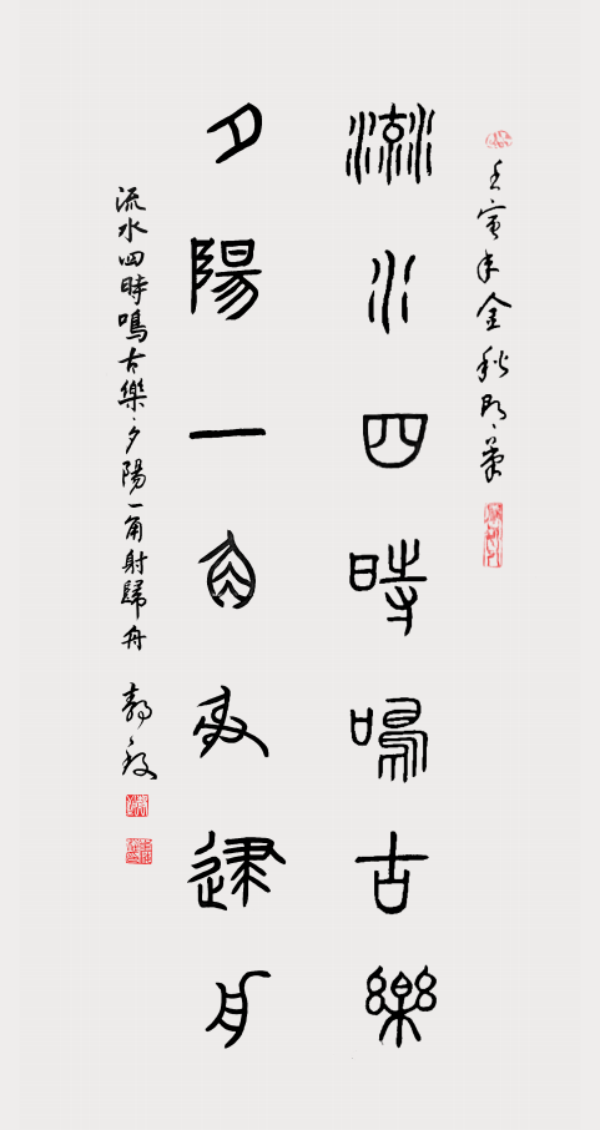 壬寅年金秋明
流水四時鳴古樂
夕陽一角射歸舟
流水四時鳴古樂夕陽一角射歸舟